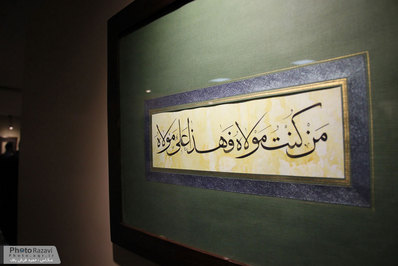 مَنْ كُنْتُ مَوْلاهُ فَهَذا عَلِيٌّ مَوْلاهُ
PhotoRazavi